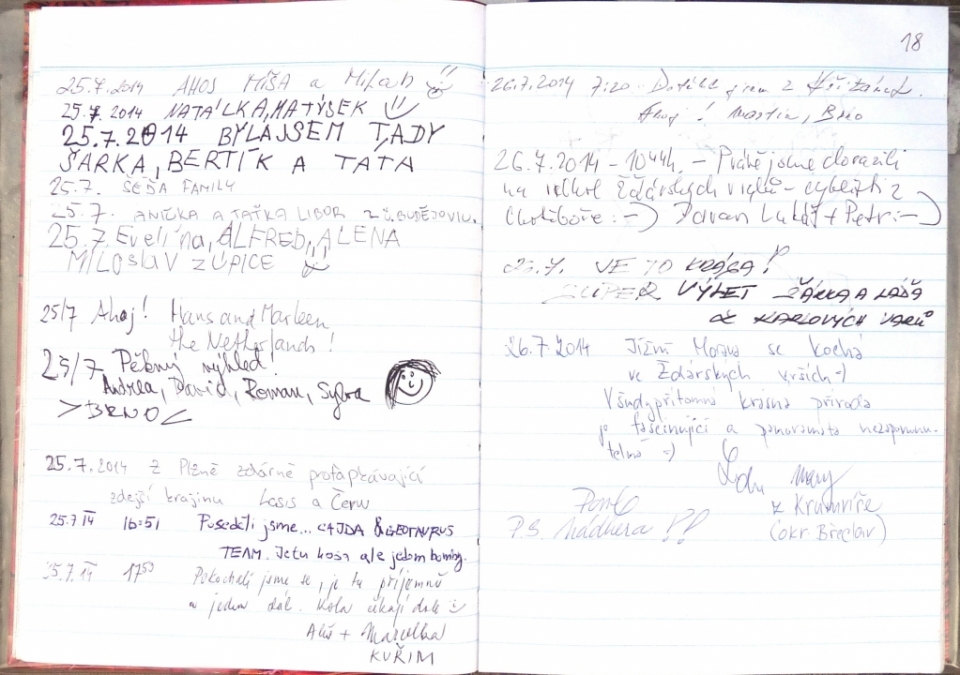 25.7.2014 AHOJ MÍŠA a Milada
25.7.2014 NATÁLKA, MATÝSEK
25.7.2014 BYLA JSEM TADY
ŠÁRKA, BERTÍK A TÁTA
25.7. SEĎA FAMILY
25.7. ANIČKA A TAŤKA LIBOR z Č. BUDĚJOVIC.
25.7. Evelína, ALFRED, ALENA
MILOSLAV Z ÚPICE
25/7 Ahoj! Hans and Marleen
the Netherlands!
25/7 Pěkný výhled!
Andrea, David, Roman, Sylva
>BRNO<
25.7.2014 Z Plzně zdárně
zdejší krajinu a Červ
25.7 14 16:51 Poseděli jsme...
TEAM. Je tu kosa ale jedem
25.7.14 17 50 Pokochali jsme se, je tu příjemně
a jedem dál. Kola čekají dole :)
Aleš + Marcelka
KUŘIM
18
26.7.2014 7:20 z
Ahoj! Martin, Brno
26.7.2014 - 1044h. - Právě jsme dorazili
na vrchol Žďárských vrchů - cyklisti z
Chotěboře :-) Lukáš + Petr :-)
26.7. JE TO KRÁSA!
SUPER VÝLET ŠÁRKA A LÁĎA
Z KARLOVÝCH VARŮ
26.7.2014 Jižní Morava se kochá
ve Žďárských vrších :-)
Všudypřítomná krásná příroda
je fascinující a panoramata nezapomenu-
telná :-)
z Krumvíře
(okr. Břeclav)
P.S. Nádhera!!